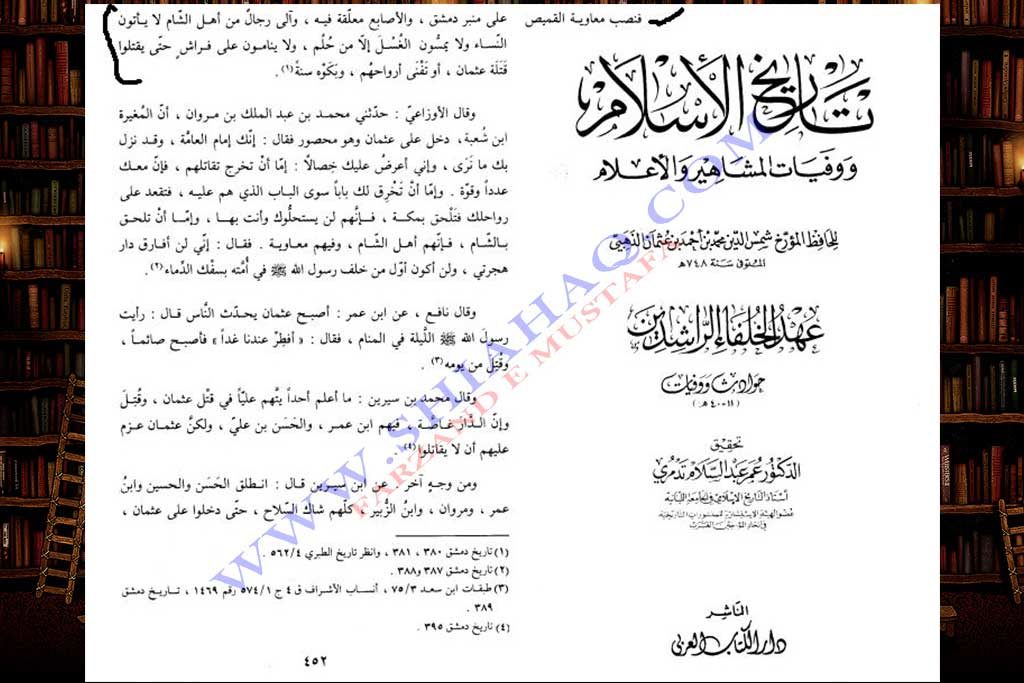 فنصب معاوية القميص
تاريخ الإسلام
ووفيات المشاهير والأعلام
للحافظ المؤرخ شمس الدين محمد بن أحمد بن عثمان الذهبي
المتوفى سنة ٧٤٨ هـ
عهد الخلفاء الراشدين
حوادث ووفيات
(١١-٤٠ هـ)
تحقيق
الدكتور عمر عبد السلام تدمري
أستاذ التاريخ الإسلامي في الجامعة اللبنانية
الناشر
دار الكتاب العربي
على منبر دمشق ، والأصابع معلّقة فيه ، وآلى رجالٌ من أهل الشّام لا يأتون
النّساء ولا يمسُّون الغُسْلَ إلّا من حُلُم ، ولا ينامون على فراشٍ حتّى يقتلوا
قَتَلَة عثمان ، أو تَفْنى أرواحهُم ، وبَكَوْه سنةً(١) .
وقال الأوزاعيّ : حدّثني محمد بن عبد الملك بن مروان ، أنّ المُغيرة
ابن شُعبة، دخل على عثمان وهو محصور فقال : إنّك إمام العامّة ، وقد نزل
بك ما تَرَى ، وإني أعرضُ عليك خِصالًا : إمّا أنْ تخرج تقاتلهم ، فإنّ معك
عدداً وقوّة . وإمّا أنْ تَخْرِق لك باباً سوى الباب الذي هم عليه ، فتقعد على
رواحلك فَتَلْحق بمكة ، فـإنَّهم لن يستحلُّوك وأنت بهـا ، وإمّـا أنْ تلحـق
بـالشّـام ، فـإنّهم أهـل الشّـام ، وفيهم معـاويـة . فقـال : إنّي لن أفـارق دار
هجرتي ، ولن أكون أوّل من خلف رسول الله ﷺ في أُمّته بسفْك الدِّماء(٢) .
وقال نافـع ، عن ابن عمر : أصبـح عثمان يحدّث النّاس قـال : رأيت
رسولَ الله ﷺ اللَّيلة في المنام ، فقال : « أفطِرْ عندنا غداً » فأصبـح صائمـاً ،
وقُتِلَ من يومه(٣) .
وقال محمد بن سيرين : ما أعلم أحداً يتَّهم عليّاً في قتْل عثمان ، وقُتِـلَ
وإنّ الـدَّارَ غـاصّـة ، فيهم ابن عمـر ، والحَسَن بن عليّ ، ولكنَّ عثمـان عـزم
عليهم أن لا يقاتلوا(٤) .
ومن وجـهٍ آخـر . عن ابن سيـرين قـال : انـطلق الحَسَن والحسين وابنُ
عمر ، ومروان ، وابنُ الزُّبير ، كلّهم شاك السِّلاح ، حتّى دخلوا على عثمان ،
(١) تاريخ دمشق ٣٨٠ ، ٣٨١ ، وانظر تاريخ الطبري ٥٦٢/٤ .
(٢) تاريخ دمشق ٣٨٧ و٣٨٨.
(٣) طبقات ابن سعد ٧٥/٣ ، أنساب الأشراف ق ٤ ج ٥٧٤/١ رقم ١٤٦٩ ، تـاريـخ دمشق
٣٨٩ .
(٤) تاريخ دمشق ٣٩٥ .
٤٥٢
WWW.SHIAHAQ.COM
FARZAND E MUSTAFA